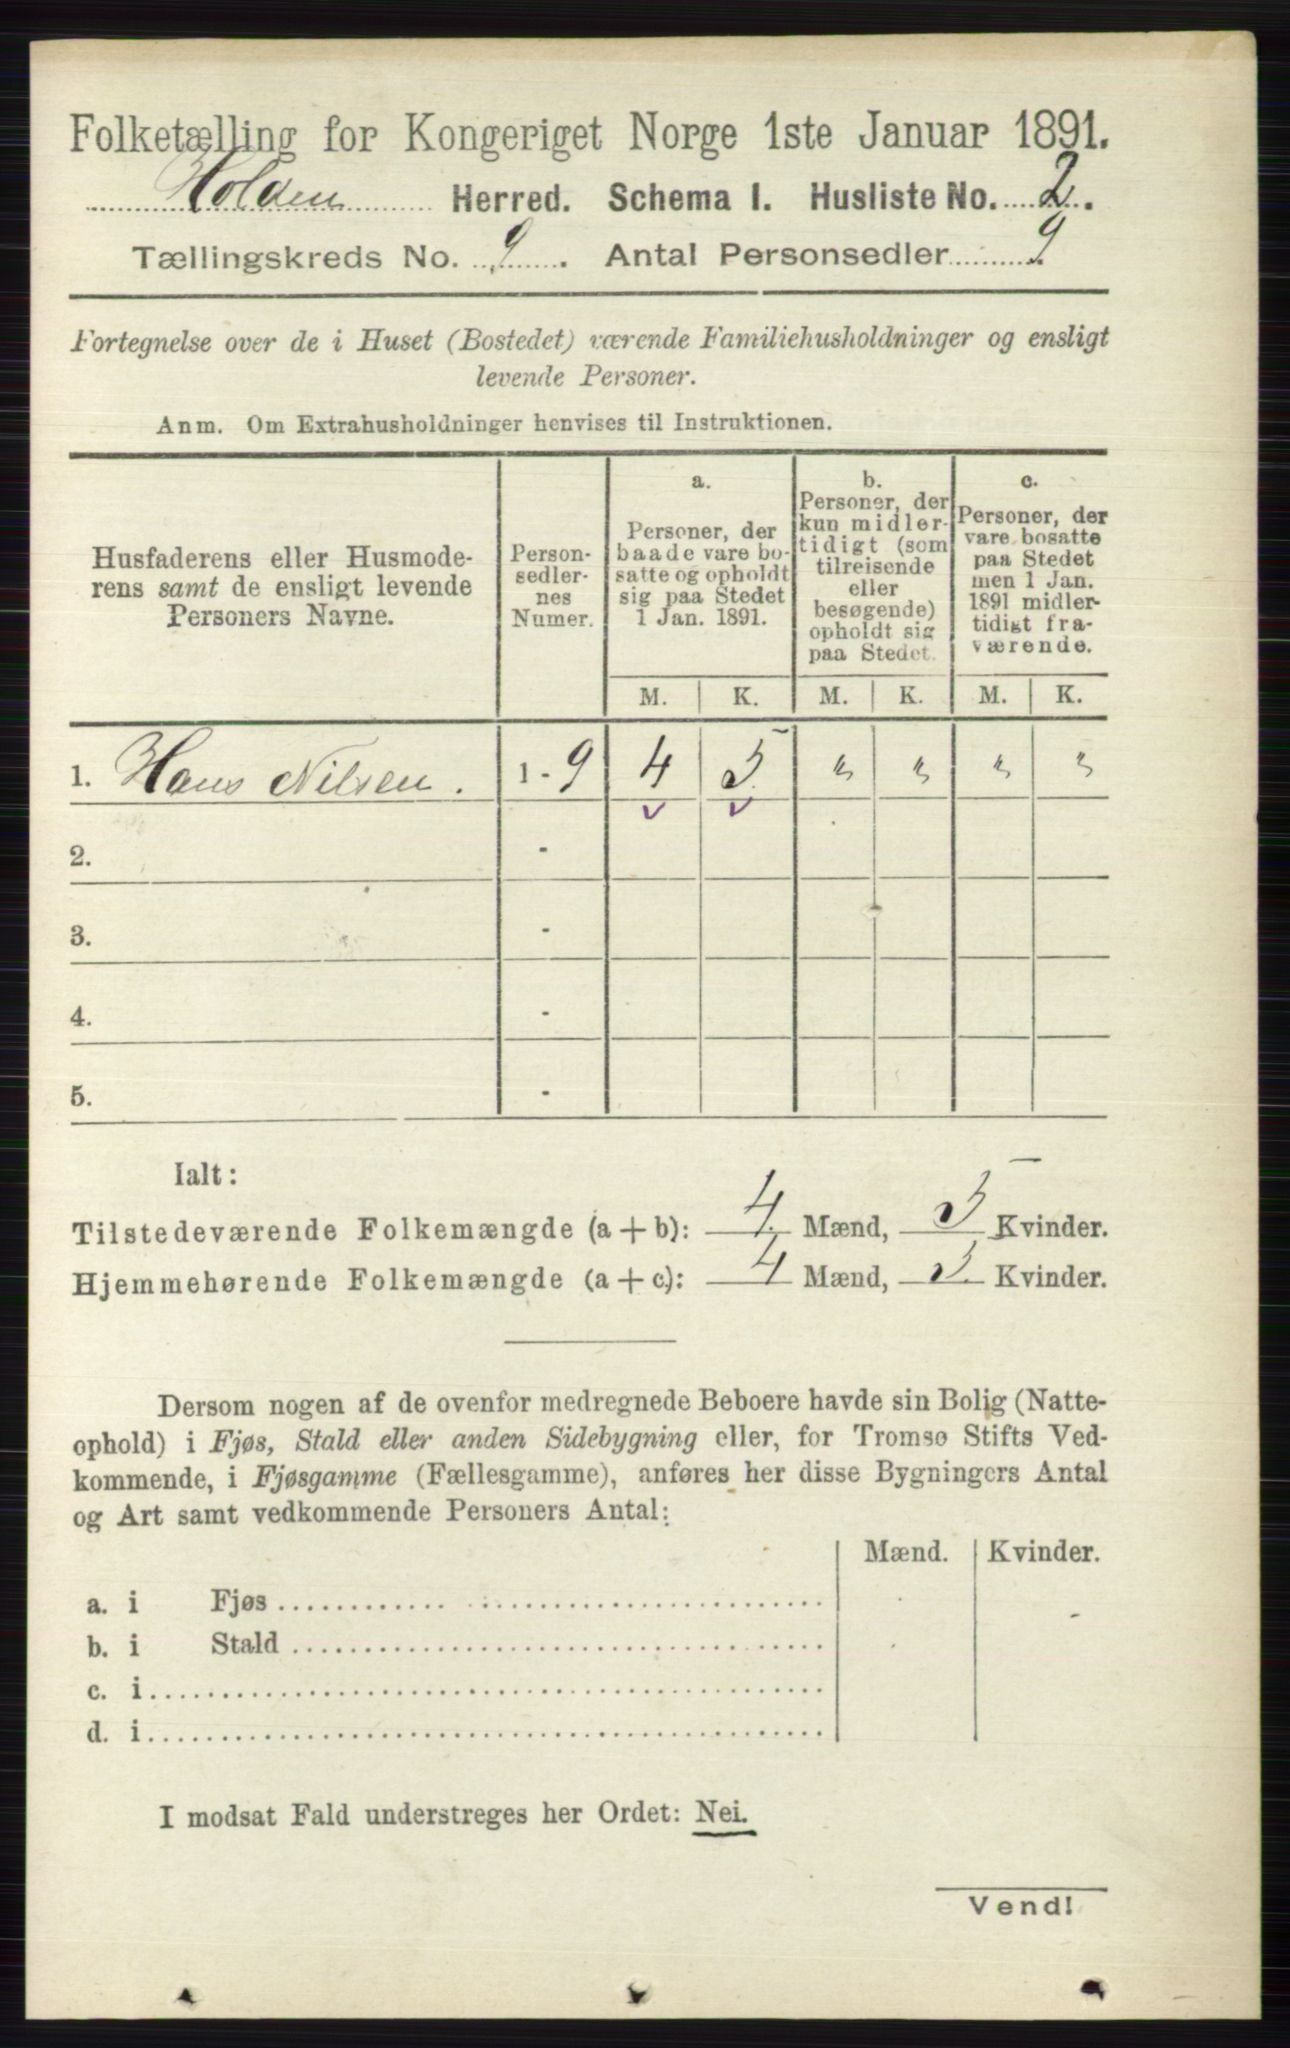 Folketælling for Kongeriget Norge 1ste Januar 1891.
Holden Herred. Schema I. Husliste No. 2.
Tællingskreds No. 9. Antal Personsedler 9
Fortegnelse over de i Huset (Bostedet) værende Familiehusholdninger og ensligt
levende Personer.
Anm. Om Extrahusholdninger henvises til Instruktionen.
Husfaderens eller Husmode-
rens samt de ensligt levende
Personers Navne.
Person-
sedler-
nes
Numer.
a.
Personer, der
baade vare bo-
satte og opholdt
sig paa Stedet
1 Jan. 1891.
b.
Personer, der
kun midler-
tidigt (som
tilreisende
eller
besøgende)
opholdt sig
paa Stedet.
c.
Personer, der
vare bosatte
paa Stedet
men 1 Jan.
1891 midler-
tidigt fra-
værende.
M. K. M. K. M. K.
1. Hans Nilsen. 1 - 9 4 5 " " " "
2. -
3. -
4. -
5. -
Ialt:
Tilstedeværende Folkemængde (a + b): 4 Mænd, 5 Kvinder.
Hjemmehørende Folkemængde (a + c): 4 Mænd, 5 Kvinder.
Dersom nogen af de ovenfor medregnede Beboere havde sin Bolig (Natte-
ophold) i Fjøs, Stald eller anden Sidebygning eller, for Tromsø Stifts Ved-
kommende, i Fjøsgamme (Fællesgamme), anføres her disse Bygningers Antal
og Art samt vedkommende Personers Antal:
Mænd. Kvinder.
a. i Fjøs
b. i Stald
c. i
d. i
I modsat Fald understreges her Ordet: Nei.
Vend!